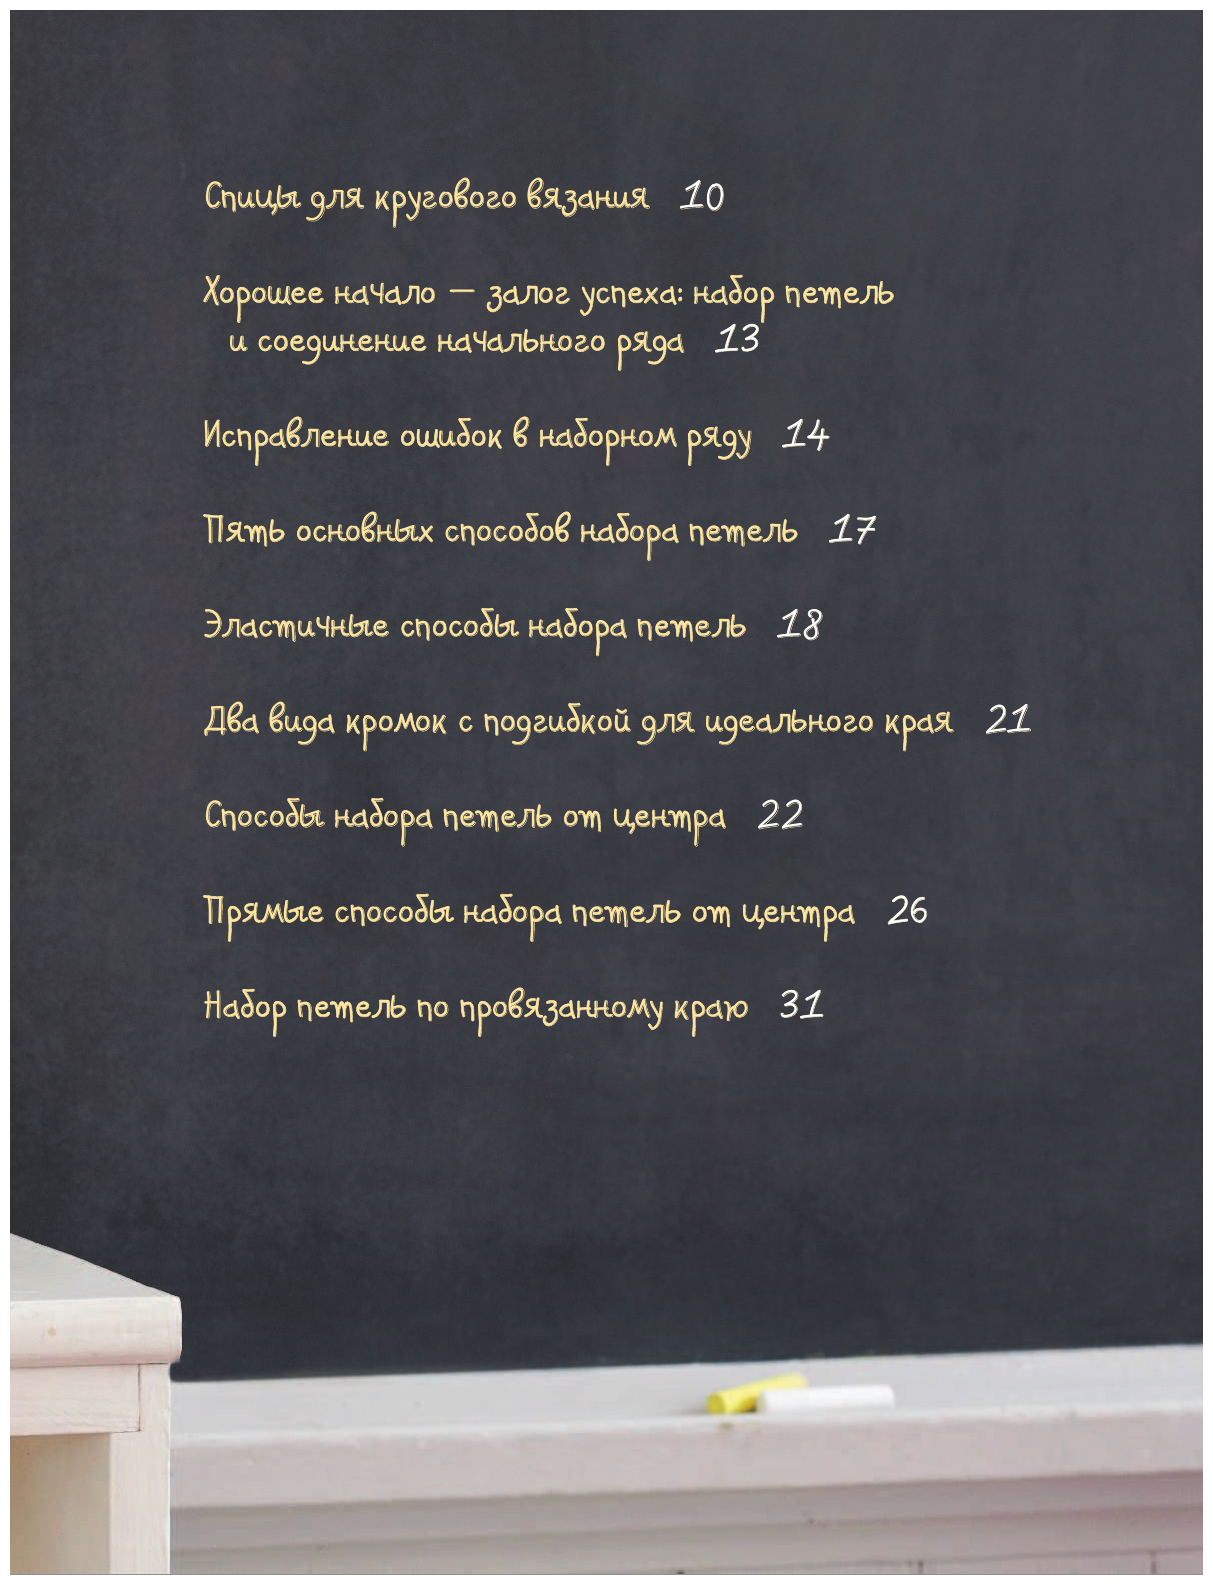 Спицы для кругового вязания 10
Хорошее начало — залог успеха: набор петель
и соединение начального ряда 13
Исправление ошибок в наборном ряду 14
Пять основных способов набора петель 17
Эластичные способы набора петель 18
Два вида кромок с подгибкой для идеального края 21
Способы набора петель от центра 22
Прямые способы набора петель от центра 26
Набор петель по провязанному краю 31